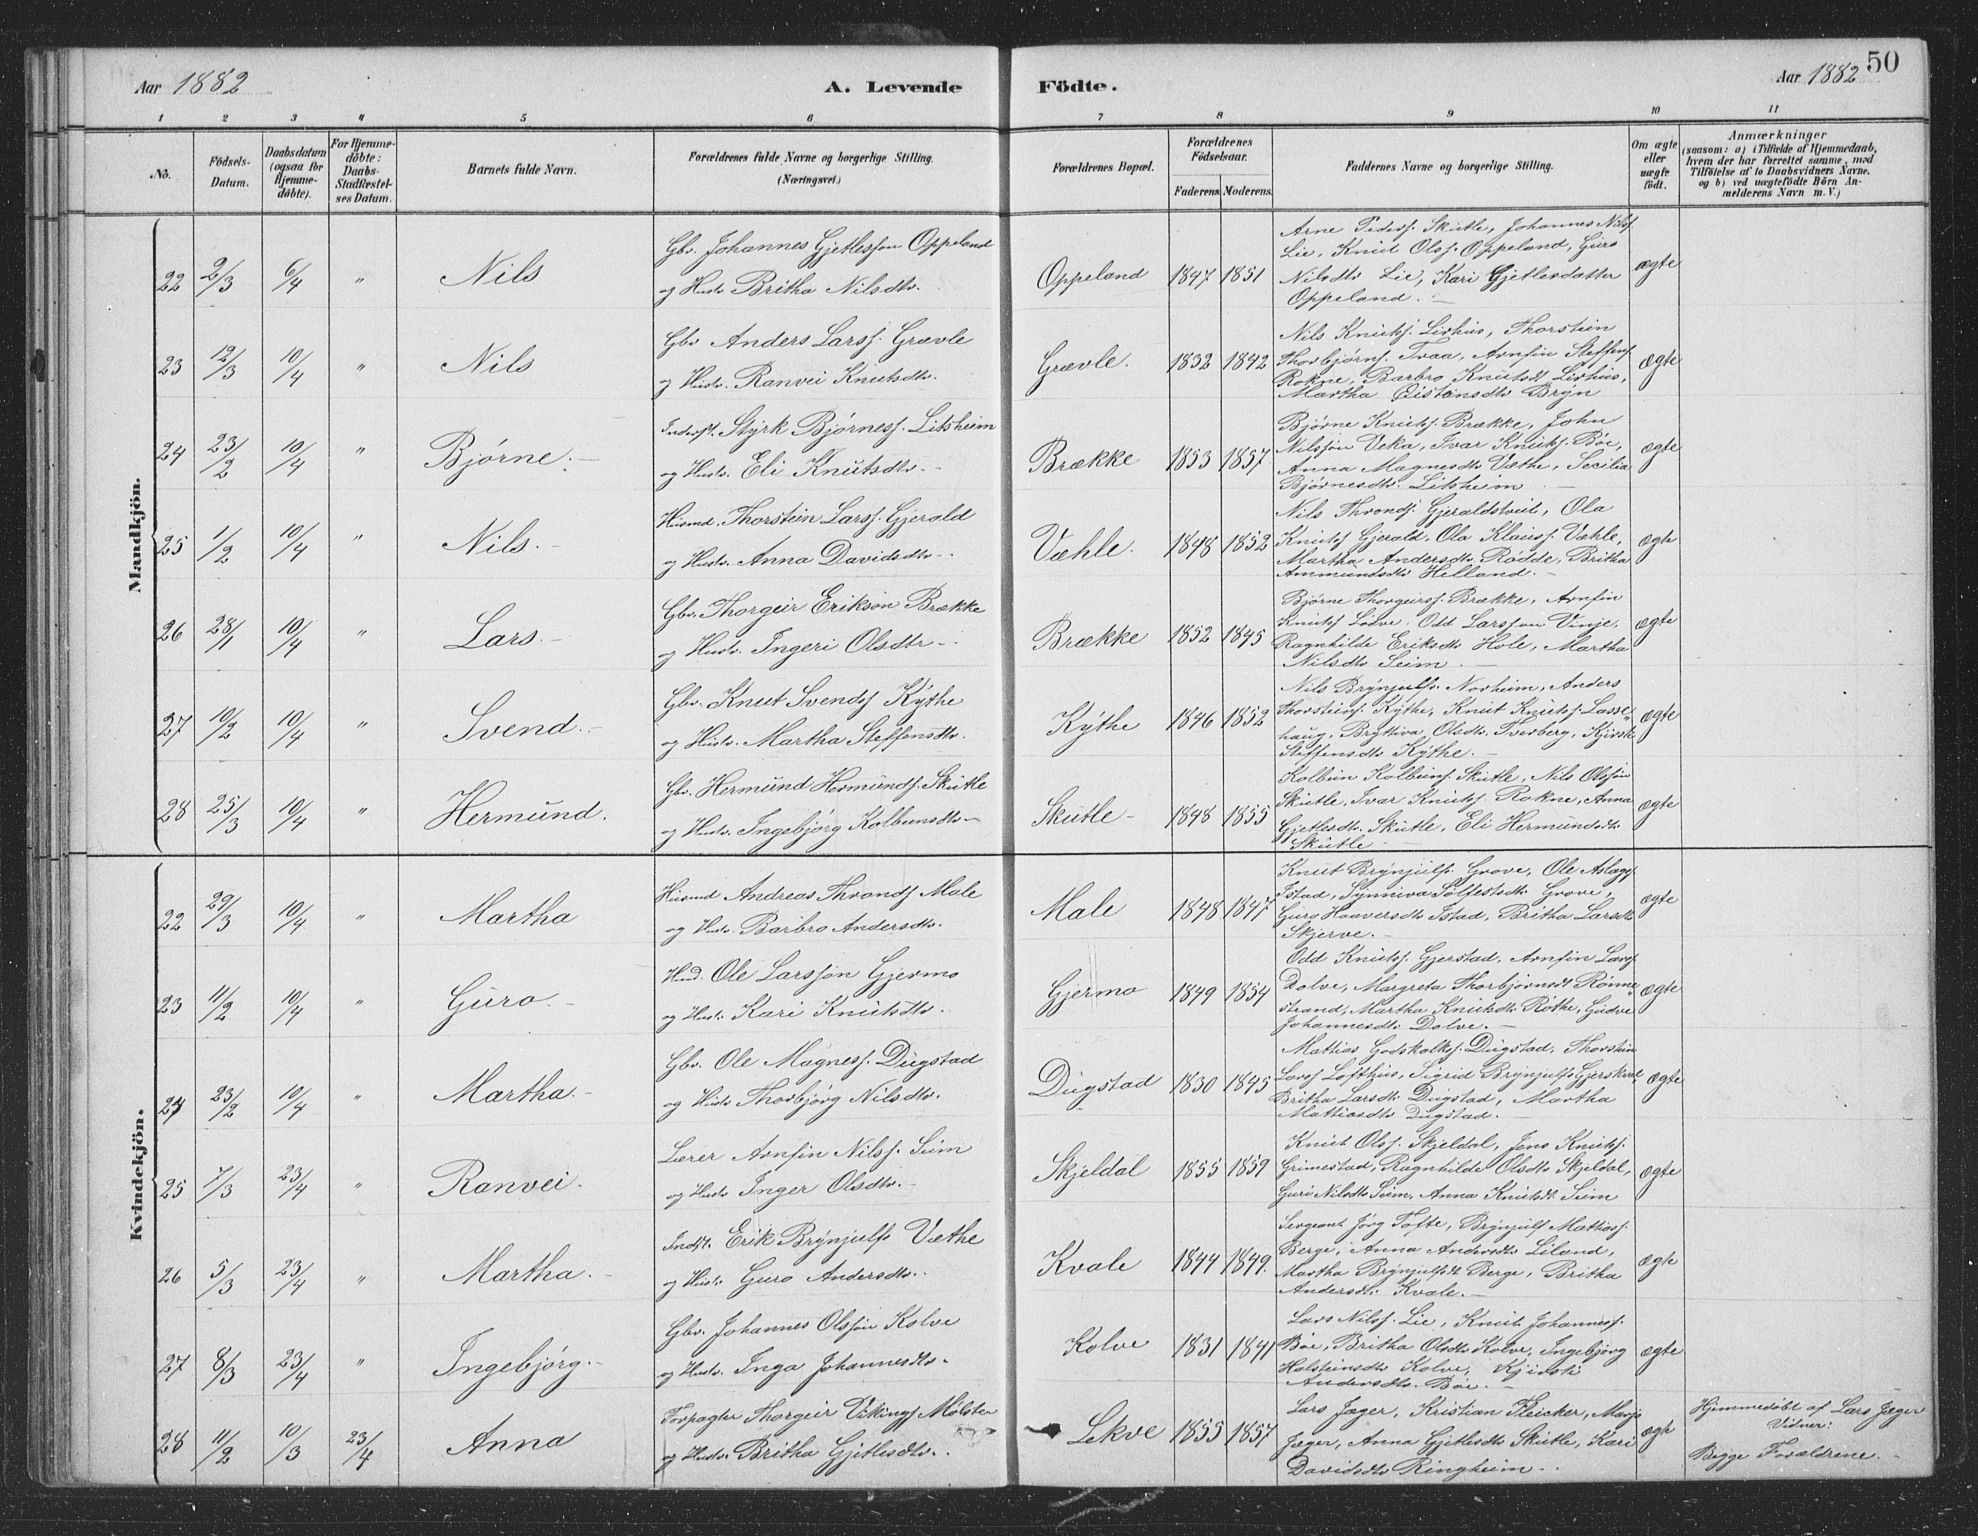 Aar 1882
A. Levende Födte.
Aar 1882 50
1 2 3 4 5 6 7 8 9 10 11
No.
Födsels-Datum.
Daabsdatum (ogsaa for Hjemmedöbte).
For Hjemmedöbte: Daabs-Stadfæstelses Datum.
Barnets fulde Navn.
Forældrenes fulde Navne og borgerlige Stilling. (Næringsvei.)
Forældrenes Bopæl.
Forældrenes Födselsaar.
Faderens. Moderens.
Faddernes Navne og borgerlige Stilling.
Om ægte eller uægte født.
Anmærkninger
(saasom: a) i Tilfælde af Hjemmedaab,
hvem der har forrettet samme, med
Tilføielse af to Daabsvidners Navne.
og b) ved uægtefödte Börn Anmelderens Navn m. V.)
Mandkjön.
22 2/3 6/4 " Nils
Gbr. Johannes Gjetlessøn Oppeland
og Hustr. Britha Nilsdtr.
Oppeland 1847 1851
Arne Peders. Skutle, Johannes Nilss.
Lie, Knut Olss. Oppeland, Guro
Nilsdtr Lie, Kari Gjetlesdatter
Oppeland.
ægte
23 12/3 10/4 " Nils
Gbr Anders Larss. Grævle
og Hustr. Ranvei Knutsdtr.
Grævle. 1832 1842
Nils Knutss. Lirhus, Thorstein
Thorbjørns. Tvaa, Arnfin Steffens.
Rokne, Barbro Knutsdt. Lirhus,
Martha Eistensdtr Bryn
ægte
24 23/2 10/4 " Bjørne.
Inderst. Styrk Bjørness. Litsheim
og Hustr. Eli Knutsdtr.
Brække 1853 1857
Bjørne Knutss. Brække, John
Nilssøn Veka, Ivar Knutss. Bøe,
Anna Magnesdtr Væthe, Secilia
Bjørnesdtr. Litsheim
ægte
25 1/2 10/4 " Nils.
Husmd. Thorstein Larss. Gjerald
og Hustr. Anna Davidsdtr.
Væhle. 1848 1852
Nils Thronds. Gjeraldstveit, Ola
Knutss. Gjerald, Ola Klauss. Væhle,
Martha Andersdtr. Rødde, Britha
Ammundsdtr Helland.
ægte
26 28/1 10/4 " Lars.
Gbr. Thorgeir Erikson Brække
og Hustr. Ingeri Olsdtr
Brække 1852 1845
Bjørne Thorgeirss. Brække, Arnfin
Knutss Lølve, Odd Larssøn Vinje,
Ragnhilde Eriksdt Hole, Martha
Nilsdtr Seim.
ægte
27 10/2 10/4 " Svend.
Gbr. Knut Svends. Kythe
og Hustr. Martha Steffensdtr.
Kythe 1846 1852
Nils Brynjulfs. Norheim, Anders
Thorsteins. Kythe, Knut Knutss. Lassehaug,
Bryttva Olsdtr. Tverberg,
Steffensdtr Kythe.
ægte
28 25/3 10/4 " Hermund.
Gbr. Hermund Hermunds. Skutle
og Hustr. Ingebjørg Kolbeinsdtr
Skutle 1848 1855
Kolbein Kolbeins. Skutle, Nils Olssøn
Skutle, Ivar Knutss. Rokne, Anna
Gjetlesdtr. Skutle, Eli Hermundsdtr
Skutle
ægte
Kvindekjön.
22 29/3 10/4 " Martha
Husmd Andreas Thronds. Male
og Hustr. Barbro Andersdtr.
Male 1848 1847
Knut Brynjulfs. Grove, Ole Aslags.
Istad, Synniva Sølfestsdt. Grove,
Guro Haaversdtr Istad, Britha Larsdtr
Skjerve.
ægte
23 11/2 10/4 " Guro.
Husd. Ole Larssøn Gjermo
og Hustr. Kari Knutsdtr.
Gjermo 1849 1854
Odd Knutss. Gjerstad, Arnfin Larss.
Dolve, Margreta Thorbjørnsdt Rønnestrand,
Martha Knutsdt. Røthe, Gudve
Johannesdtr. Dolve.
ægte
24 23/2 10/4 " Martha.
Gbr. Ole Magness. Dugstad
og Hustr Thorbjørg Nilsdtr.
Dugstad 1830 1845
Mattias Godskalks. Dugstad, Thorstein
Larss Lofthus, Sigrid Brynjulfs. Gjerskvol,
Britha Larsdt. Dugstad, Martha
Mattiasdtr Dugstad.
ægte
25 7/3 23/4 " Ranvei.
Lærer Arnfin Nilss. Seim
og Hustr Inger Olsdtr.
Skjeldal 1855 1859
Knut Olss. Skjeldal, Jens Knutss.
Grimestad, Ragnhilde Olsdtr Skjeldal,
Guri Nilsdtr Seim, Anna Knutsdt. Seim
ægte
26 5/3 23/4 " Martha.
Indst. Erik Brynjulfs Væthe
og Hustr. Guro Andersdtr.
Kvale 1844 1849.
Sergeant Jørg Tofte, Brynjulf Mattiass.
Berge, Anna Andersdtr Liland,
Martha Brynjulfsdt Berge, Britha
Andersdt. Kvale.
ægte
27 8/3 23/4 " Ingebjørg.
Gbr. Johannes Olssøn Kolve
og Hustr. Inga Johannesdtr.
Kolve 1831 1841
Lars Nilss. Lie, Knut Johanness.
Bøe, Britha Olsdtr Kolve, Ingebjørg
Holsteinsdtr Kolve, Kjirsti
Andersdtr. Bøe.
ægte
28 11/2 10/3 23/4 Anna
Forpagter Thorgeir Vikings. Mølster
og Hustr. Britha Gjetlesdtr.
Lekve 1855 1857
Lars Jæger, Kristian Fleicker, Marjo
Jæger, Anna Gjetlesdtr Skutle, Kari
Davidsdtr Ringheim.
ægte
Hjemmedøbt af Lars Jæger
Vidner:
Begge Forældrene.